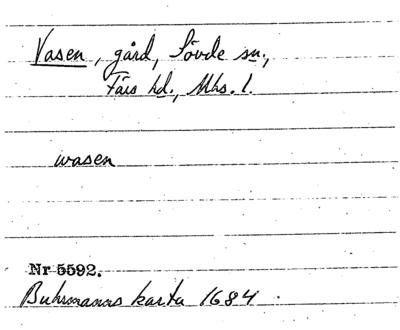 Vasen, gård, Sövde sn.,
Färs hd., Mhs. l.
wasen
Nr 5592.
Buhrmanns karta 1684